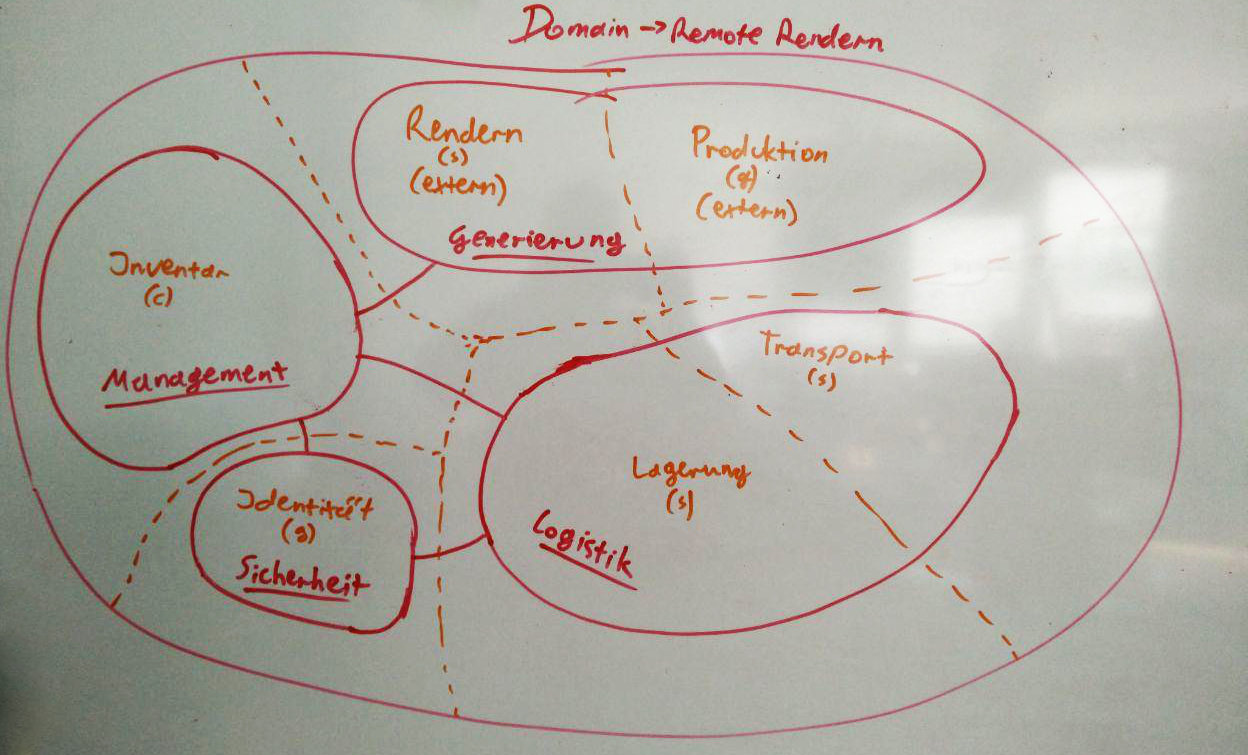 Domain -> Remote Rendern
Rendern
(s)
(extern)
Generierung
Produktion
(g)
(extern)
Inventar
(c)
Management
Transport
(s)
Lagerung
(s)
Logistik
Identität
(g)
Sicherheit